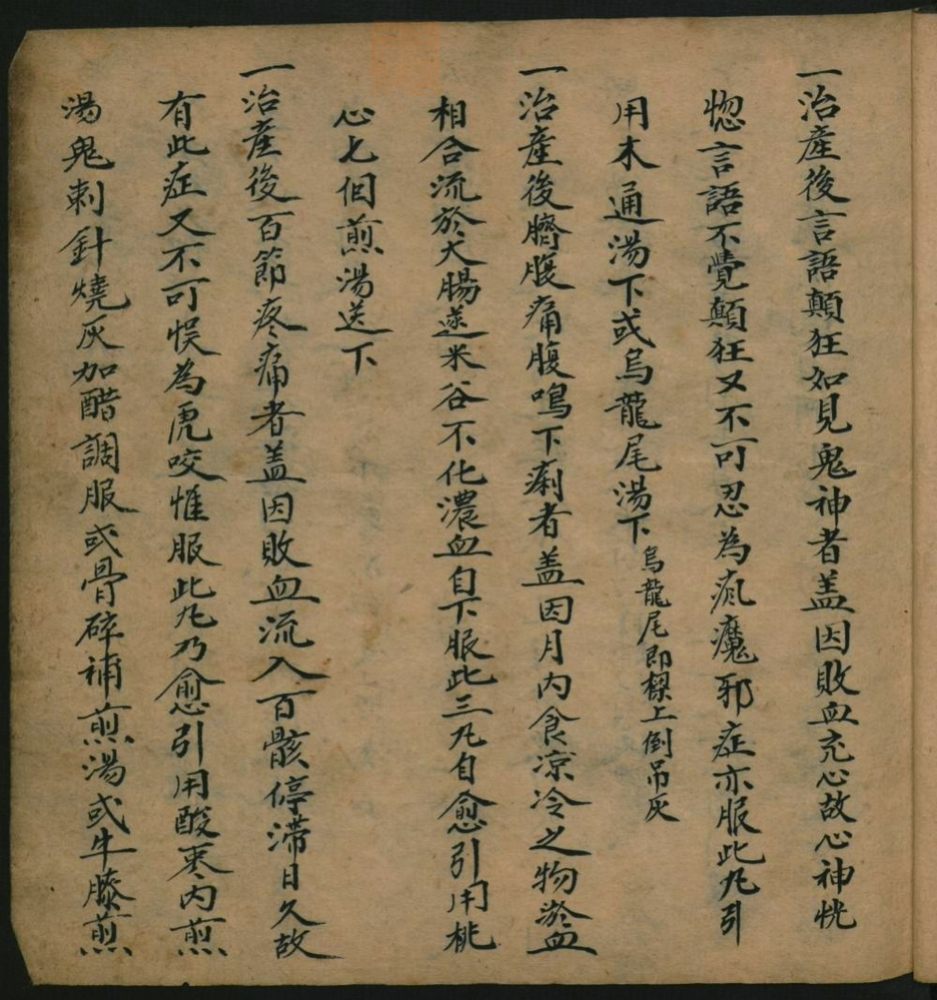 一治產後言語顛狂如見鬼神者盖因敗血充心故心神恍
惚言語不覺顛狂又不可忍為瘋魔邪症亦服此丸引
用木通湯下或烏龍尾湯下烏龍尾即樑上倒吊灰
一治產後臍腹痛腹鳴下痢者盖因月内食凉冷之物淤血
相合流於大腸遂米谷不化濃血自下服此三丸自愈引用桃
心七個煎湯送下
一治產後百節疼痛者盖因敗血流入百骸停滯日久故
有此症又不可悞為虎咬惟服此丸乃愈引用酸枣内煎
湯鬼刺針燒灰加醋調服或骨碎補煎湯或牛膝煎